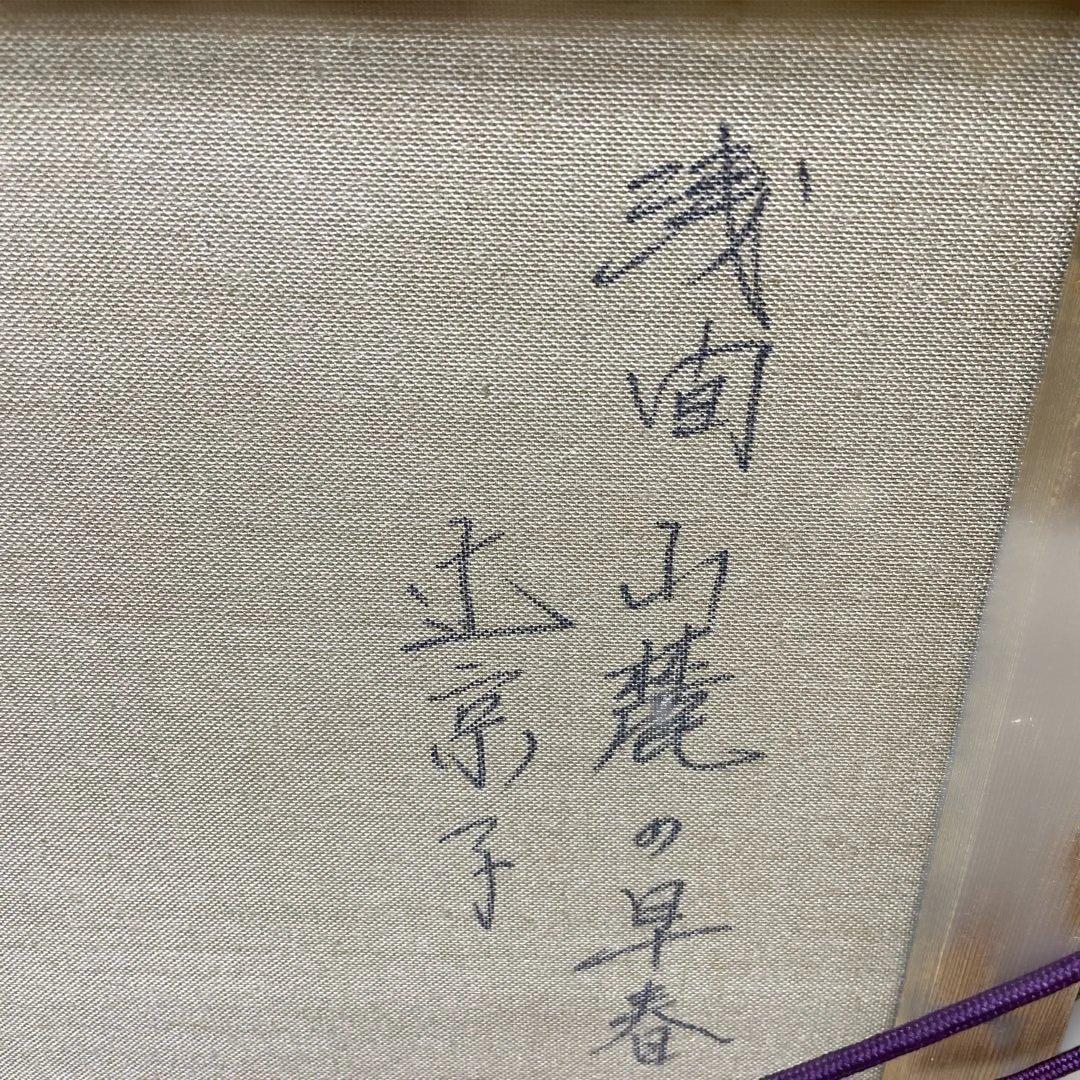 浅間山麓の早春
京子